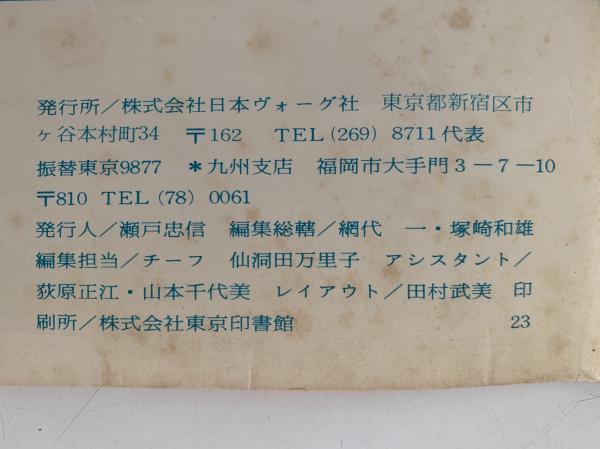 発行所／株式会社日本ヴォーグ社　東京都新宿区市
ヶ谷本村町34　〒162　TEL（269）8711代表
振替東京9877　＊九州支店　福岡市大手門3－7－10
〒810 TEL（78）0061
発行人／瀬戸忠信　編集総轄／網代　一・塚崎和雄
編集担当／チーフ　仙洞田万里子　アシスタント／
荻原正江・山本千代美　レイアウト／田村武美　印
刷所／株式会社東京印書館　23